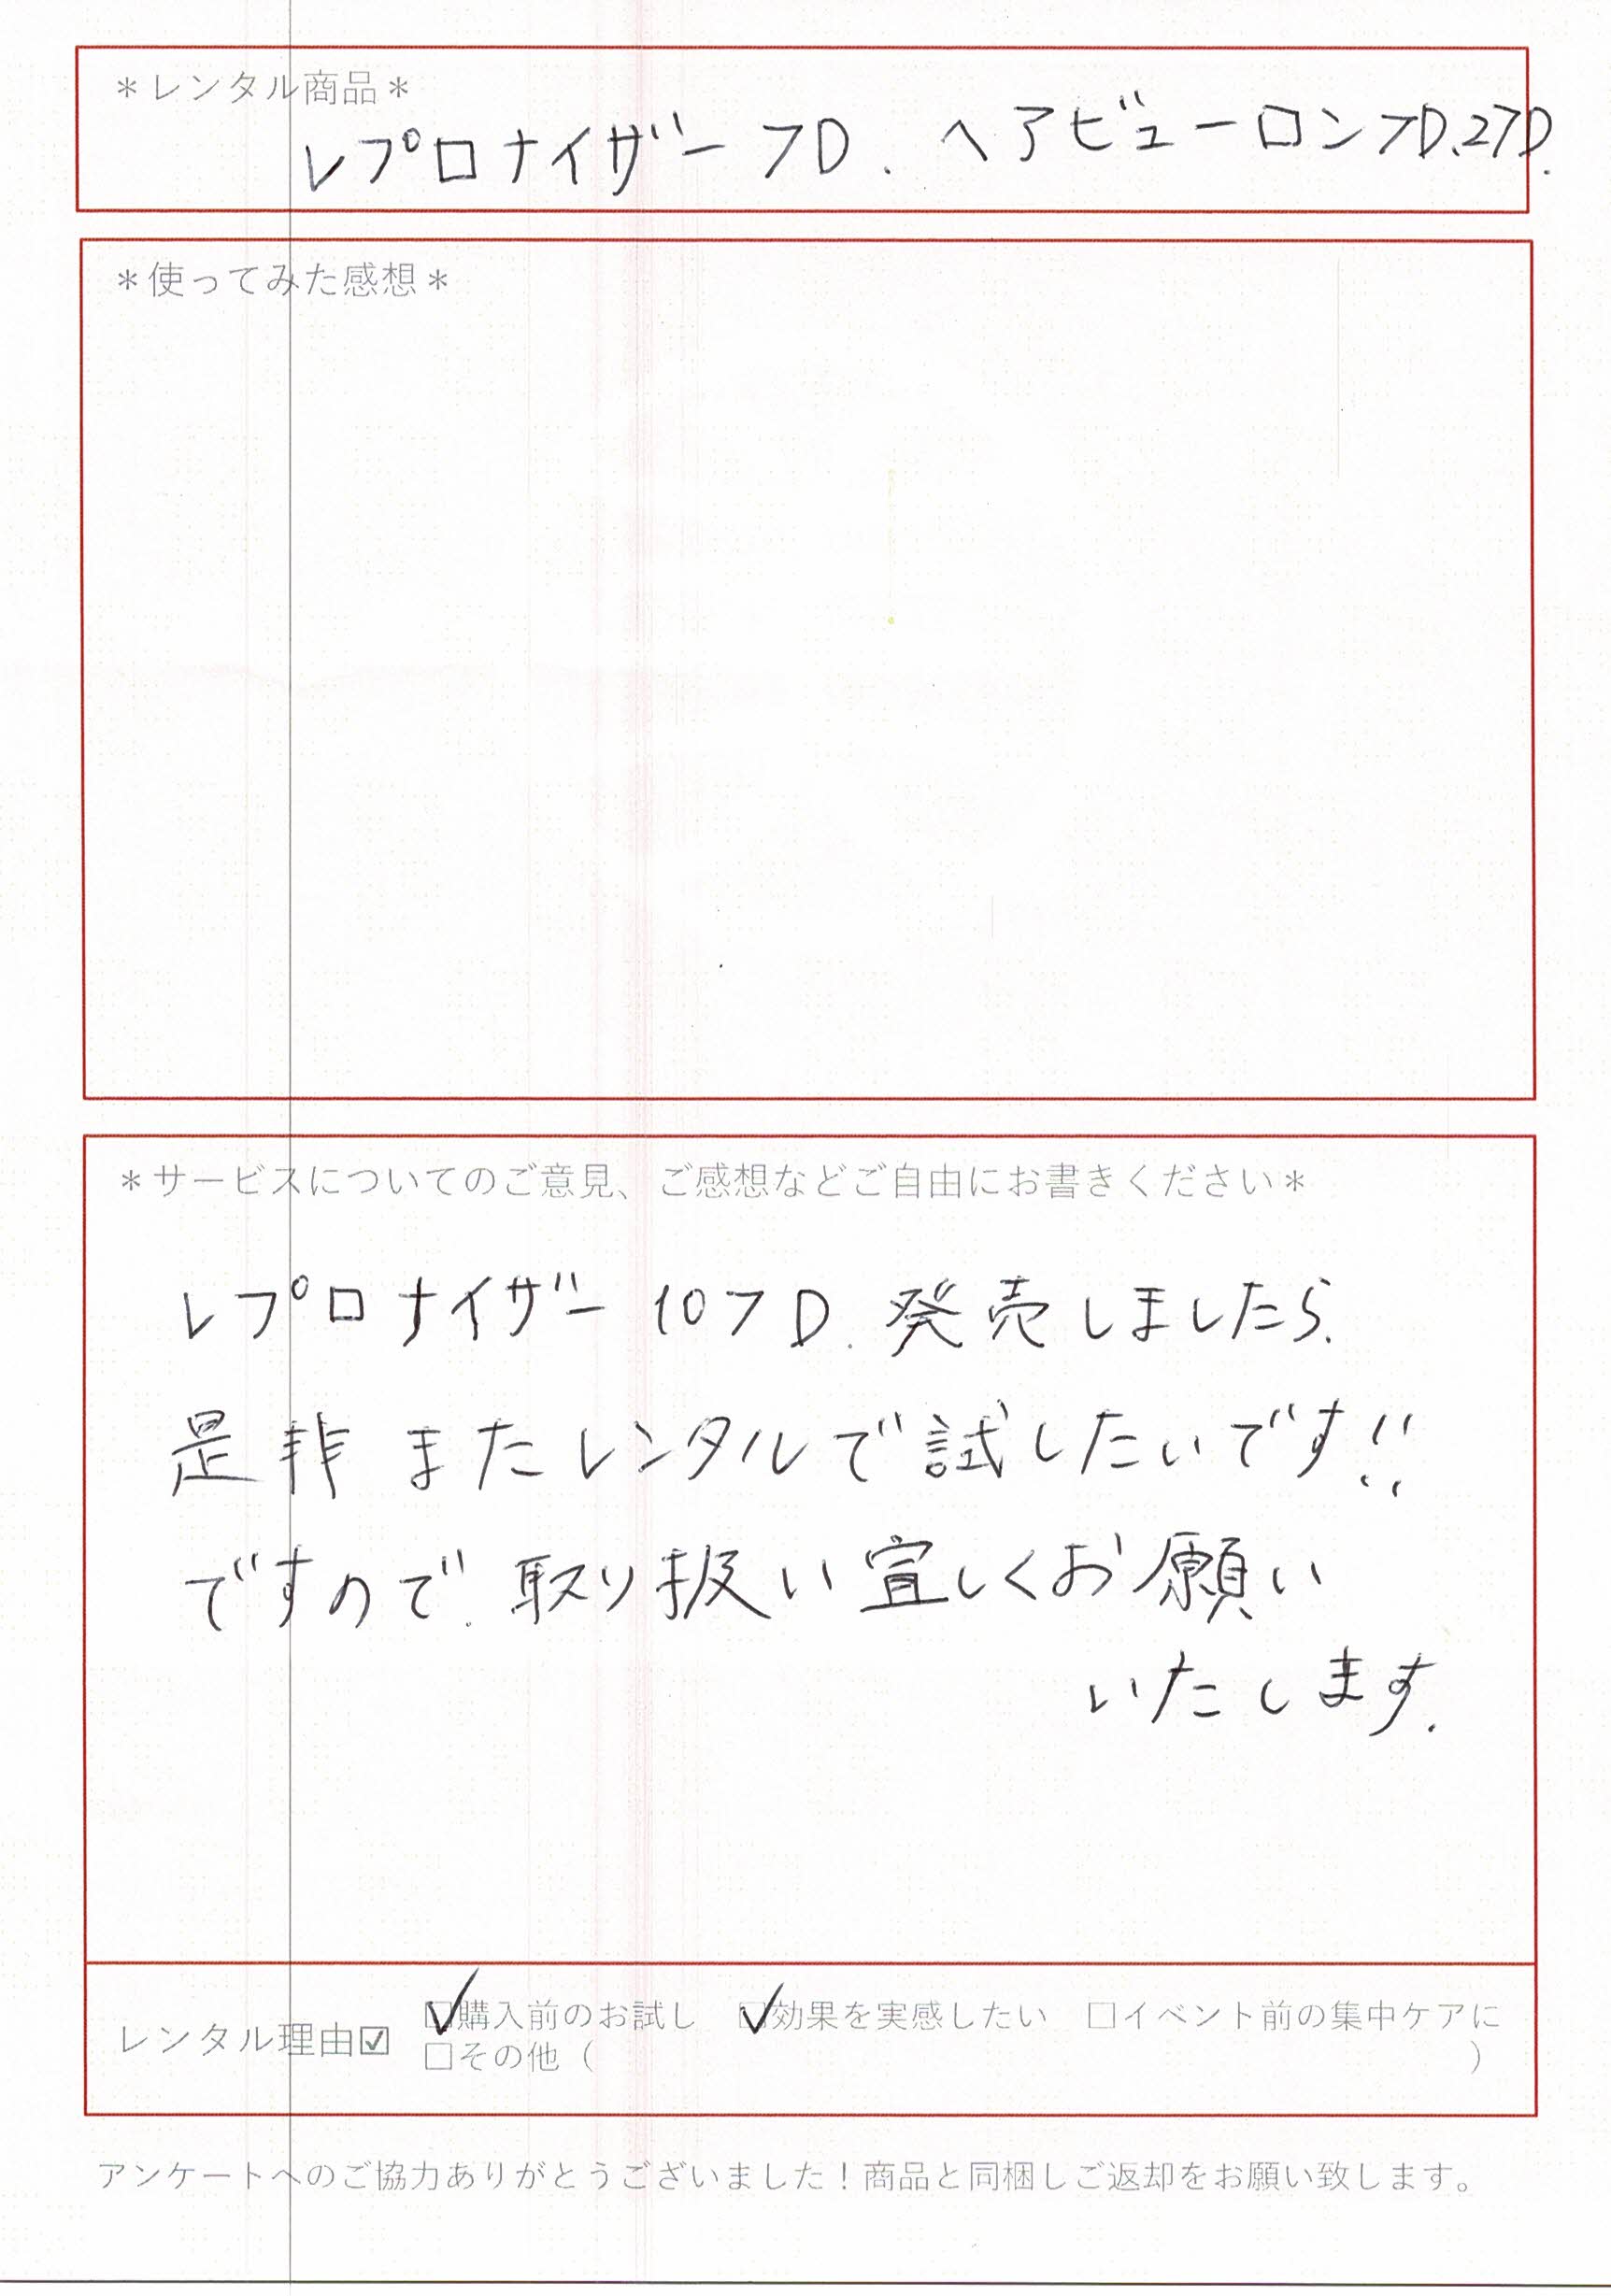 ＊レンタル商品＊
レプロナイザー7D. ヘアビューロン7D、27D.
＊使ってみた感想＊
＊サービスについてのご意見、ご感想などご自由にお書きください＊
レプロナイザー107D. 発売しましたら、
是非またレンタルで試したいです!!
ですので、取り扱い宜しくお願い
いたします.
レンタル理由☑ ☑購入前のお試し ☑効果を実感したい □イベント前の集中ケアに
□その他（ ）
アンケートへのご協力ありがとうございました！商品と同梱しご返却をお願い致します。